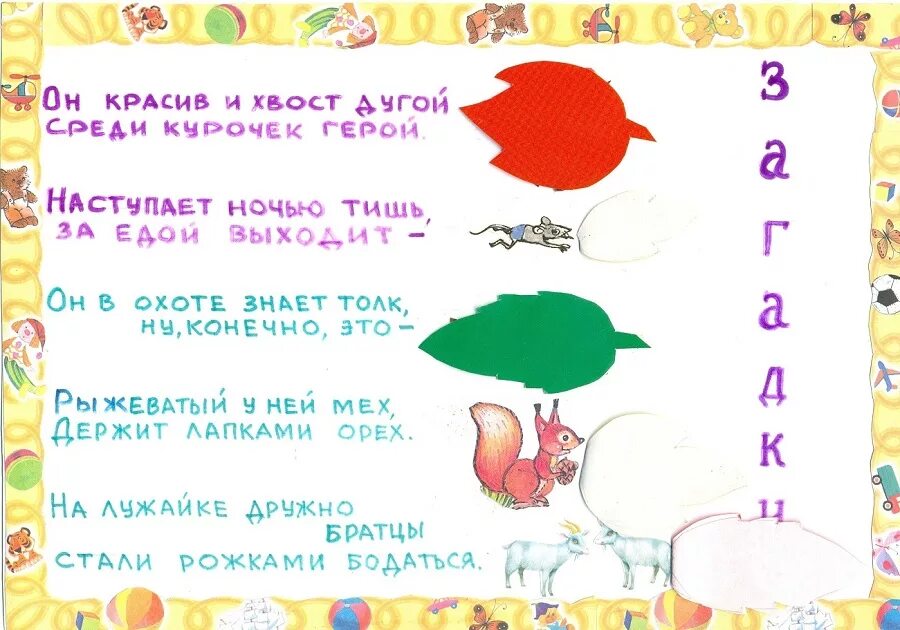 Он красив и хвост дугой
среди курочек герой.
Наступает ночью тишь,
за едой выходит –
Он в охоте знает толк,
ну, конечно, это –
Рыжеватый у ней мех,
Держит лапками орех.
На лужайке дружно
братцы
стали рожками бодаться.
Загадки